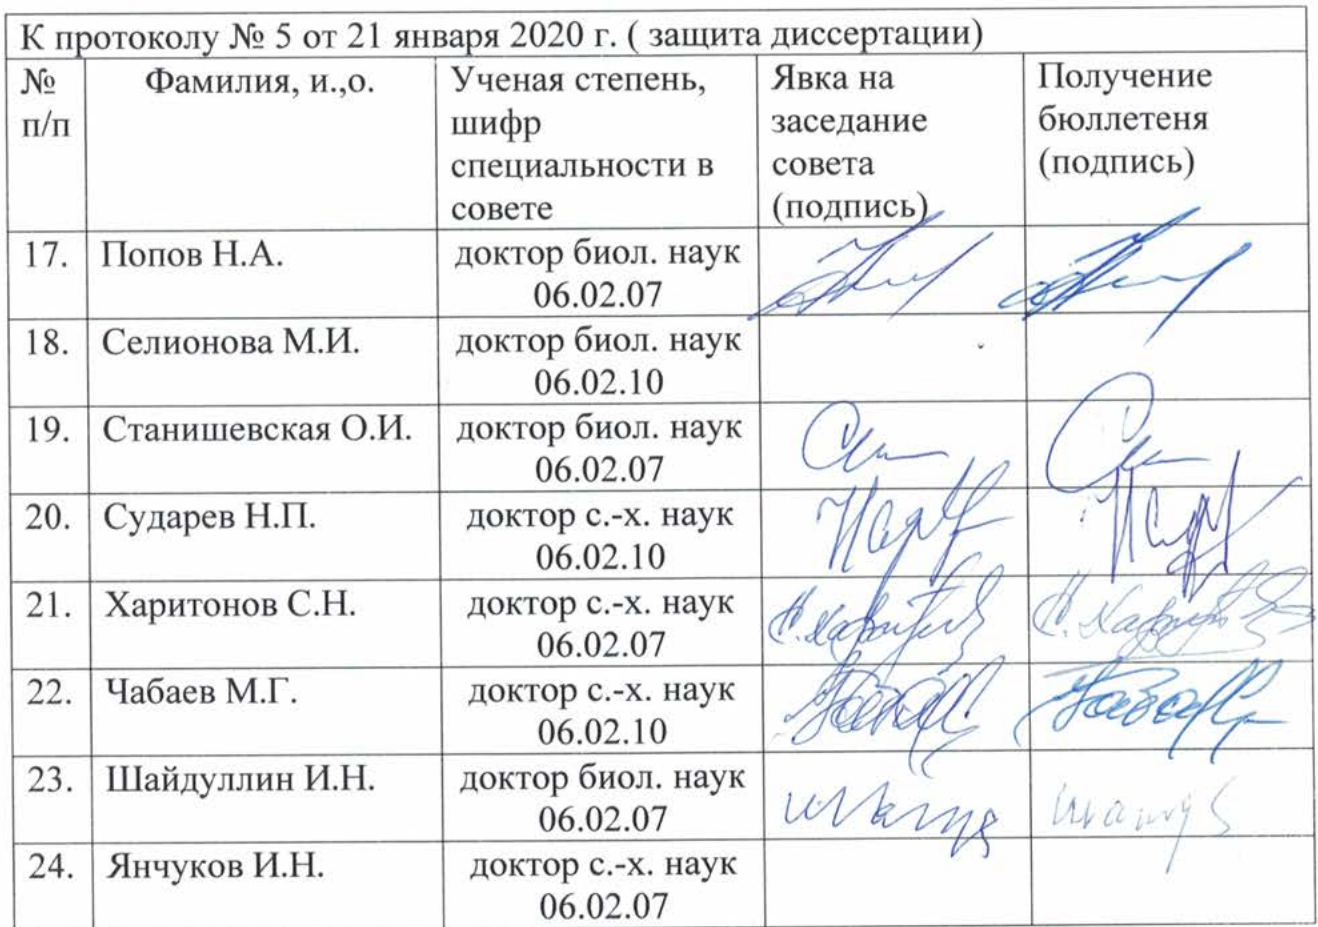 К протоколу № 5 от 21 января 2020 г. ( защита диссертации)
№ п/п Фамилия, и.,о. Ученая степень, шифр специальности в совете Явка на заседание совета (подпись) Получение бюллетеня (подпись)
17. Попов Н.А. доктор биол. наук 06.02.07
18. Селионова М.И. доктор биол. наук 06.02.10
19. Станишевская О.И. доктор биол. наук 06.02.07
20. Сударев Н.П. доктор с.-х. наук 06.02.10
21. Харитонов С.Н. доктор с.-х. наук 06.02.07
22. Чабаев М.Г. доктор с.-х. наук 06.02.10
23. Шайдуллин И.Н. доктор биол. наук 06.02.07
24. Янчуков И.Н. доктор с.-х. наук 06.02.07